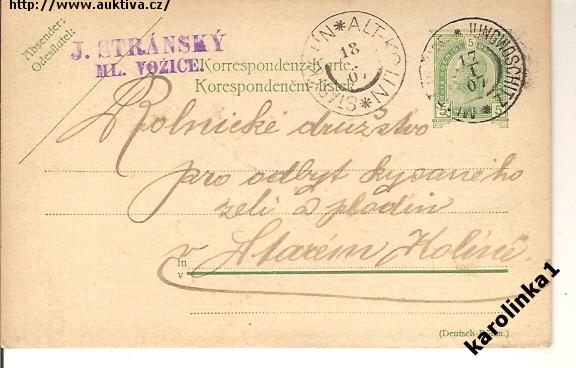 http://www.auktiva.cz/
Absender:
Odesílatel:
J. STRÁNSKÝ
ML. VOŽICE.
Korrespondenz-Karte.
Korespondenční lístek
ALT-KOLIN
STARÝ KOLÍN
18
1
07
5
JUNGWOSCHITZ
17
1
07
5
5
Rolnické družstvo
pro odbyt kysaného
zelí a plodin
v Starém Kolíně.
in
v
(Deutsch-Böhm.)
karolinka1